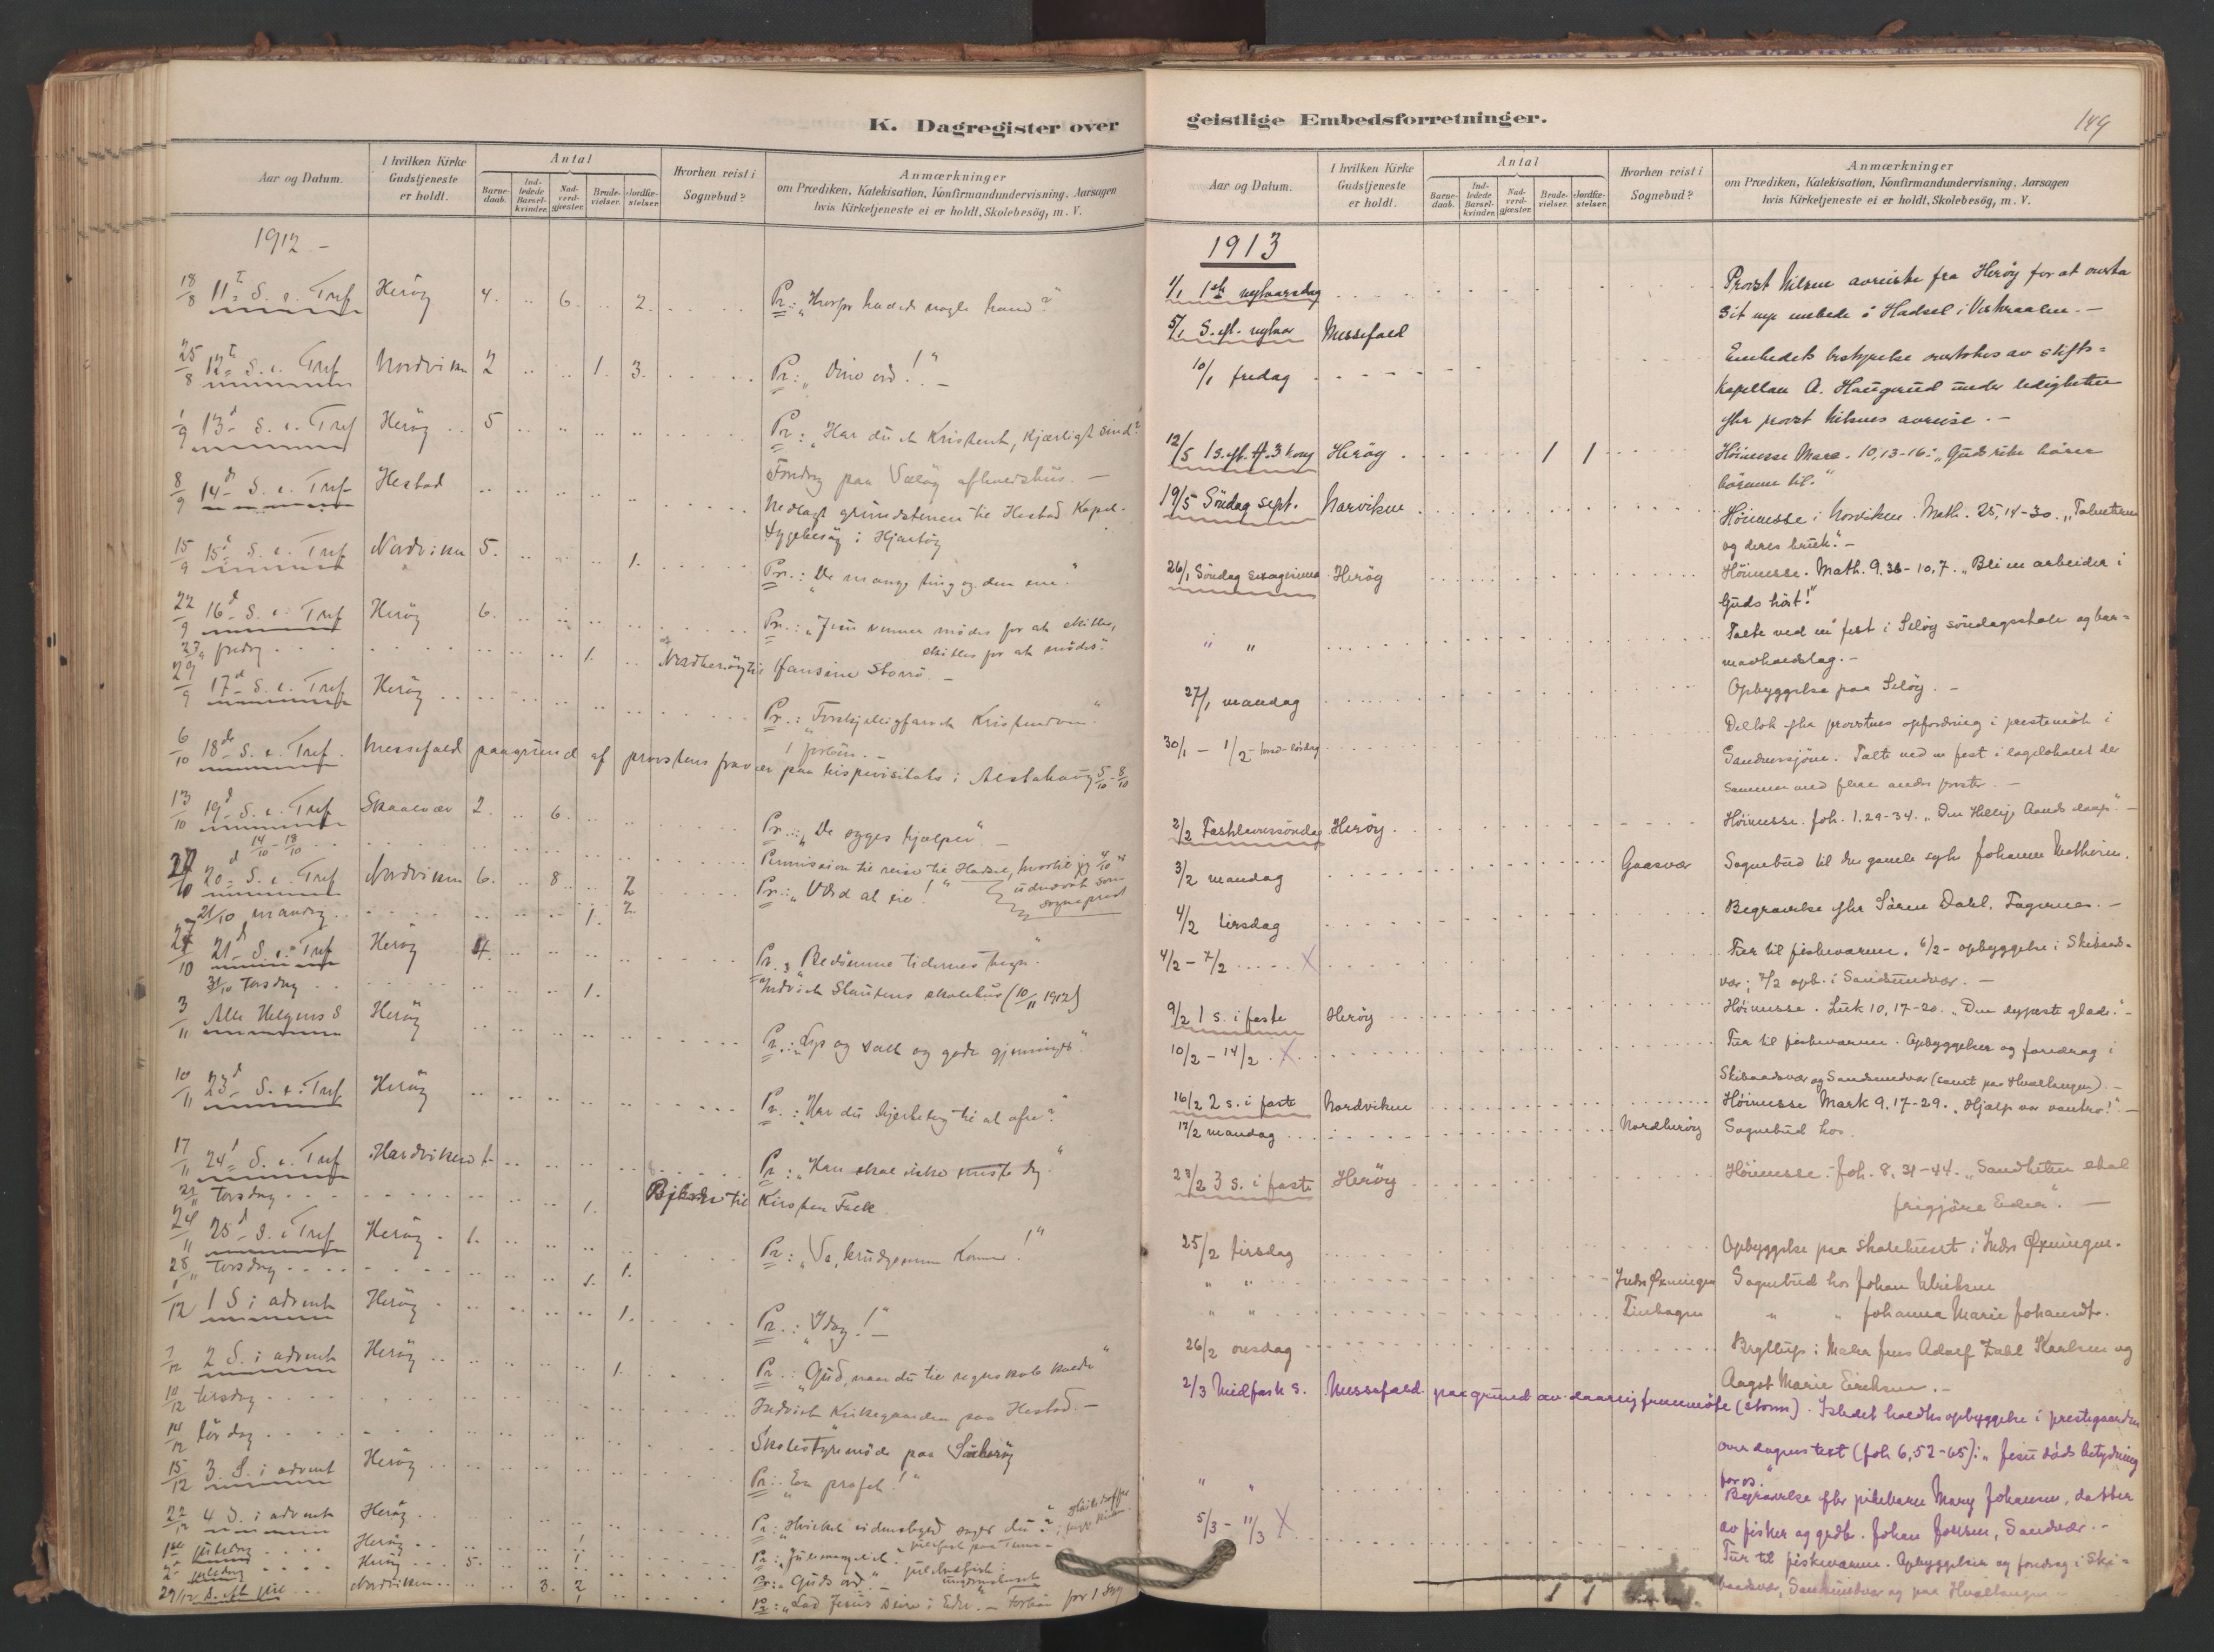 K. Dagregister over
Aar og Datum.
I hvilken Kirke Gudstjeneste er holdt.
Antal
Barnedaab.
Indledede Barselkvinder.
Nadverdgjæster.
Brudevielser.
Jordfæstelser.
Hvorhen reist i Sognebud?
Anmærkninger
om Prædiken, Katekisation, Konfirmandundervisning, Aarsagen
hvis Kirketjeneste ei er holdt, Skolebesög, m. V.
1912 –
18/8 11te S. e. Tref Herøy 4. 6. 2. Pr: "Hvorfor
25/8 12te S. e. Tref Nordviken 2 1. 3. Pr: "Dine ord!" –
1/9 13d S. e. Tref Herøy 5 Pr: "Har du et Kristent, kjærligt sind?"
8/9 14d S. e. Tref Hestad Foredrag paa Seløy afholdshus. –
Nedlagt grundstenen til Hestad Kapel.
Sygebesøg i Hjartøy
15/9 15d S. e. Tref Nordviken 5. 1. Pr.: "De mange ting og den ene."
22/9 16d S. e. Tref Herøy 6. Pr.: "Jesu venner mødes for at skilles,
skilles for at mødes."
27/" fredag 1. Nordherøy til Hansine Storrø. –
29/9 17d S. e. Tref Herøy Pr.: "Forskjelligfarvet Kristendom."
6/10 18de S. e. Tref. Messefald paagrund af provstens fravær paa bispevisitats i Alstahaug 5/10 - 8/10
13/10 19d S. e. Tref Skaalvær 2. 6. Pr.: "De syges hjælper" –
14/10 - 18/10 Permission til reise til Hadsel, hvortil jeg 4/10
udnævnt som
sogneprest
20/10 20d S. e. Tref Nordviken 6. 8. 2 Pr.: "Værd at eie!"
21/10 mandag 1. 2.
27/10 21d S. e. Tref Herøy 4. Pr. "Bedømme tidernes tegn".
31/10 Torsdag 1. Indviet Slautens skolehus (10/11 1912)
3/11 Alle Helgens S Herøy Pr.: "Lys og salt og gode gjerninger".
10/11 23d S. e. Tref Herøy Pr.: "Har du hjertelag til at ofre?"
17/11 24d S. e. Tref Pr.: "Han skal ikke miste dig."
21/" Torsdag 1. til Kirsten Falk
24/11 25d S. e. Tref Herøy 1. Pr.: "Se, brudgommen kommer!"
28/" Torsdag 1. 1.
1/12 1 S i advent Herøy 1. Pr.: "Idag!" –
7/12 2 S. i advent Herøy 1. Pr.: "Gud, naar du til regnskab kalder"
10/12 tirsdag Indviet Kirkegaarden paa Hestad. –
14/12 lørdag Skolestyremøde paa Sørherøy
15/12 3. S. i advent Herøy Pr.: "En profet!"
22/12 4 S. i advent Herøy Pr.: "Hvilket vidnesbyrd siger du?"
1ste juledag Herøy 1 Pr.: "Juleevangeliet."
2 juledag Herøy 5. 1 Pr.: "Guds ord" –
29/12 S. eft jul Nordviken 3. 2 Pr.: "Lad Jesus seire i Eder. –
geistlige Embedsforretninger.
149
Aar og Datum.
I hvilken Kirke Gudstjeneste er holdt.
Antal
Barnedaab.
Indledede Barselkvinder.
Nadverdgjæster.
Brudevielser.
Jordfæstelser.
Hvorhen reist i Sognebud?
Anmærkninger
om Prædiken, Katekisation, Konfirmandundervisning, Aarsagen
hvis Kirketjeneste ei er holdt, Skolebesög, m. V.
1913
1/1 1ste nytaarsdag Provst Nilsen avreiste fra Herøy for at overta
sit nye embede i Hadsel i Vesteraalen. –
5/1 S. eft. nytaar Messefald
10/1 fredag Embedets bestyrelse overtokes av stifts=
kapellan A. Haugerud under ledigheten
efter provst Nilsens avreise. –
12/5 1 S. eft. H. 3 kong Herøy 1 1 Høimesse Marc. 10,13-16: "Guds rike hører
børnene til."
19/5 Søndag sept. Norviken Høimesse i Norviken. Math. 25,14-30. "Talenterne
og deres bruk". –
26/1 Søndag sexagesima Herøy Høimesse. Math. 9,36-10,7. "Bli en arbeider i
Guds høst!"
" " Talte ved en fest i Seløy søndagsskole og bar=
neavholdslag. –
27/1 mandag Opbyggelse paa Seløy. –
30/1 – 1/2 – torsd-lørdag Deltok efter provstens opfordring i prestemøte i
Sandnessjøen. Talte ved en fest i logelokalet der
sammen med flere andre prester. –
2/2 Fastelavnssøndag Herøy Høimesse. Joh. 1,29-34. "Den Hellige Aands daap". –
3/2 mandag Gaasvær Sognebud til den gamle syke Johanna
4/2 tirsdag Begravelse efter Søren Dahl, Fagernes. –
4/2 – 7/2 X Tur til fiskeværene. 6/2 – opbyggelse i Skibaads-
vær; 7/2 opb. i Sandsundvær. –
9/2 1 S. i faste Herøy Høimesse. Luk 10,17-20. "Den dypeste glæde". –
10/2 – 14/2 X Tur til fiskeværene. Opbyggelser og foredrag i
Skibaadsvær og Sandsundvær (samt paa Hvallangen). –
16/2 2 s. i faste Nordviken Høimesse Mark 9.17-29. "Hjælp vor vantro!" –
17/2 mandag Nordherøy Sognebud hos
23/2 3 S. i faste Herøy Høimesse. Joh. 8,31-44. "Sandheten skal
frigjøre Eder". –
25/2 tirsdag Opbyggelse paa Skolehuset i Indre Øxningen.
" " Indre Øxningen Sognebud hos Johan Ulriksen
" " Tenhagen " " Johanna Marie Johansdtr.
26/2 onsdag Bryllup: Maler Jens Adolf Dahl Karlsen og
Aagot Marie Eriksen. –
2/3 Midfaste s. Messefald paa grund av daarlig fremmøte (storm). Istedet holdtes opbyggelse i prestegaarden
over dagens text (Joh 6,52-65): "Jesu døds betydning
for os."
" " Begravelse efter pikebarn Mary Johansen, datter
av fisker og gaardbr. Johan Johnsen, Sandvær. –
5/3 – 11/3 X Tur til fiskeværene. Opbyggelser og foredrag i Ski=
baadsvær, Sandsundvær og paa Hvallangen
1 1